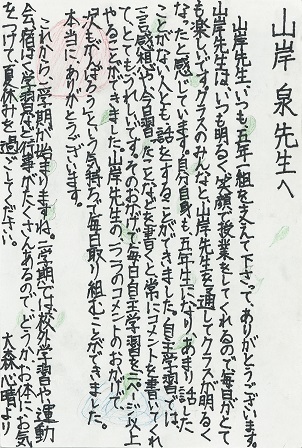 山岸 泉先生へ
山岸先生いつも五年一組を支えて下さってありがとうございます。
山岸先生はいつも明るく笑顔で授業をしてくれるので毎日がとて
も楽しいです。クラスのみんなと山岸先生を通してクラスが明るく
なったと感じています。自分自身も、五年生になり、あまり話した
ことがない人とも話をすることができました。自主学習では、
一言感想や今日習ったことなどを書くと常にコメントを書いてくれ
て、とてもうれしいです。そのおかげで毎日自主学習を二ページ以上
やることができました。山岸先生の一つ一つのコメントのおかげで、
次もがんばろうという気持ちで毎日取り組むことができました。
本当にありがとうございます。
これから二学期が始まりますね。二学期では校外学習や運動
会、宿はく学習など行事がたくさんあるので、どうかお体にお気
をつけて夏休みを過ごしてください。
大森心晴より